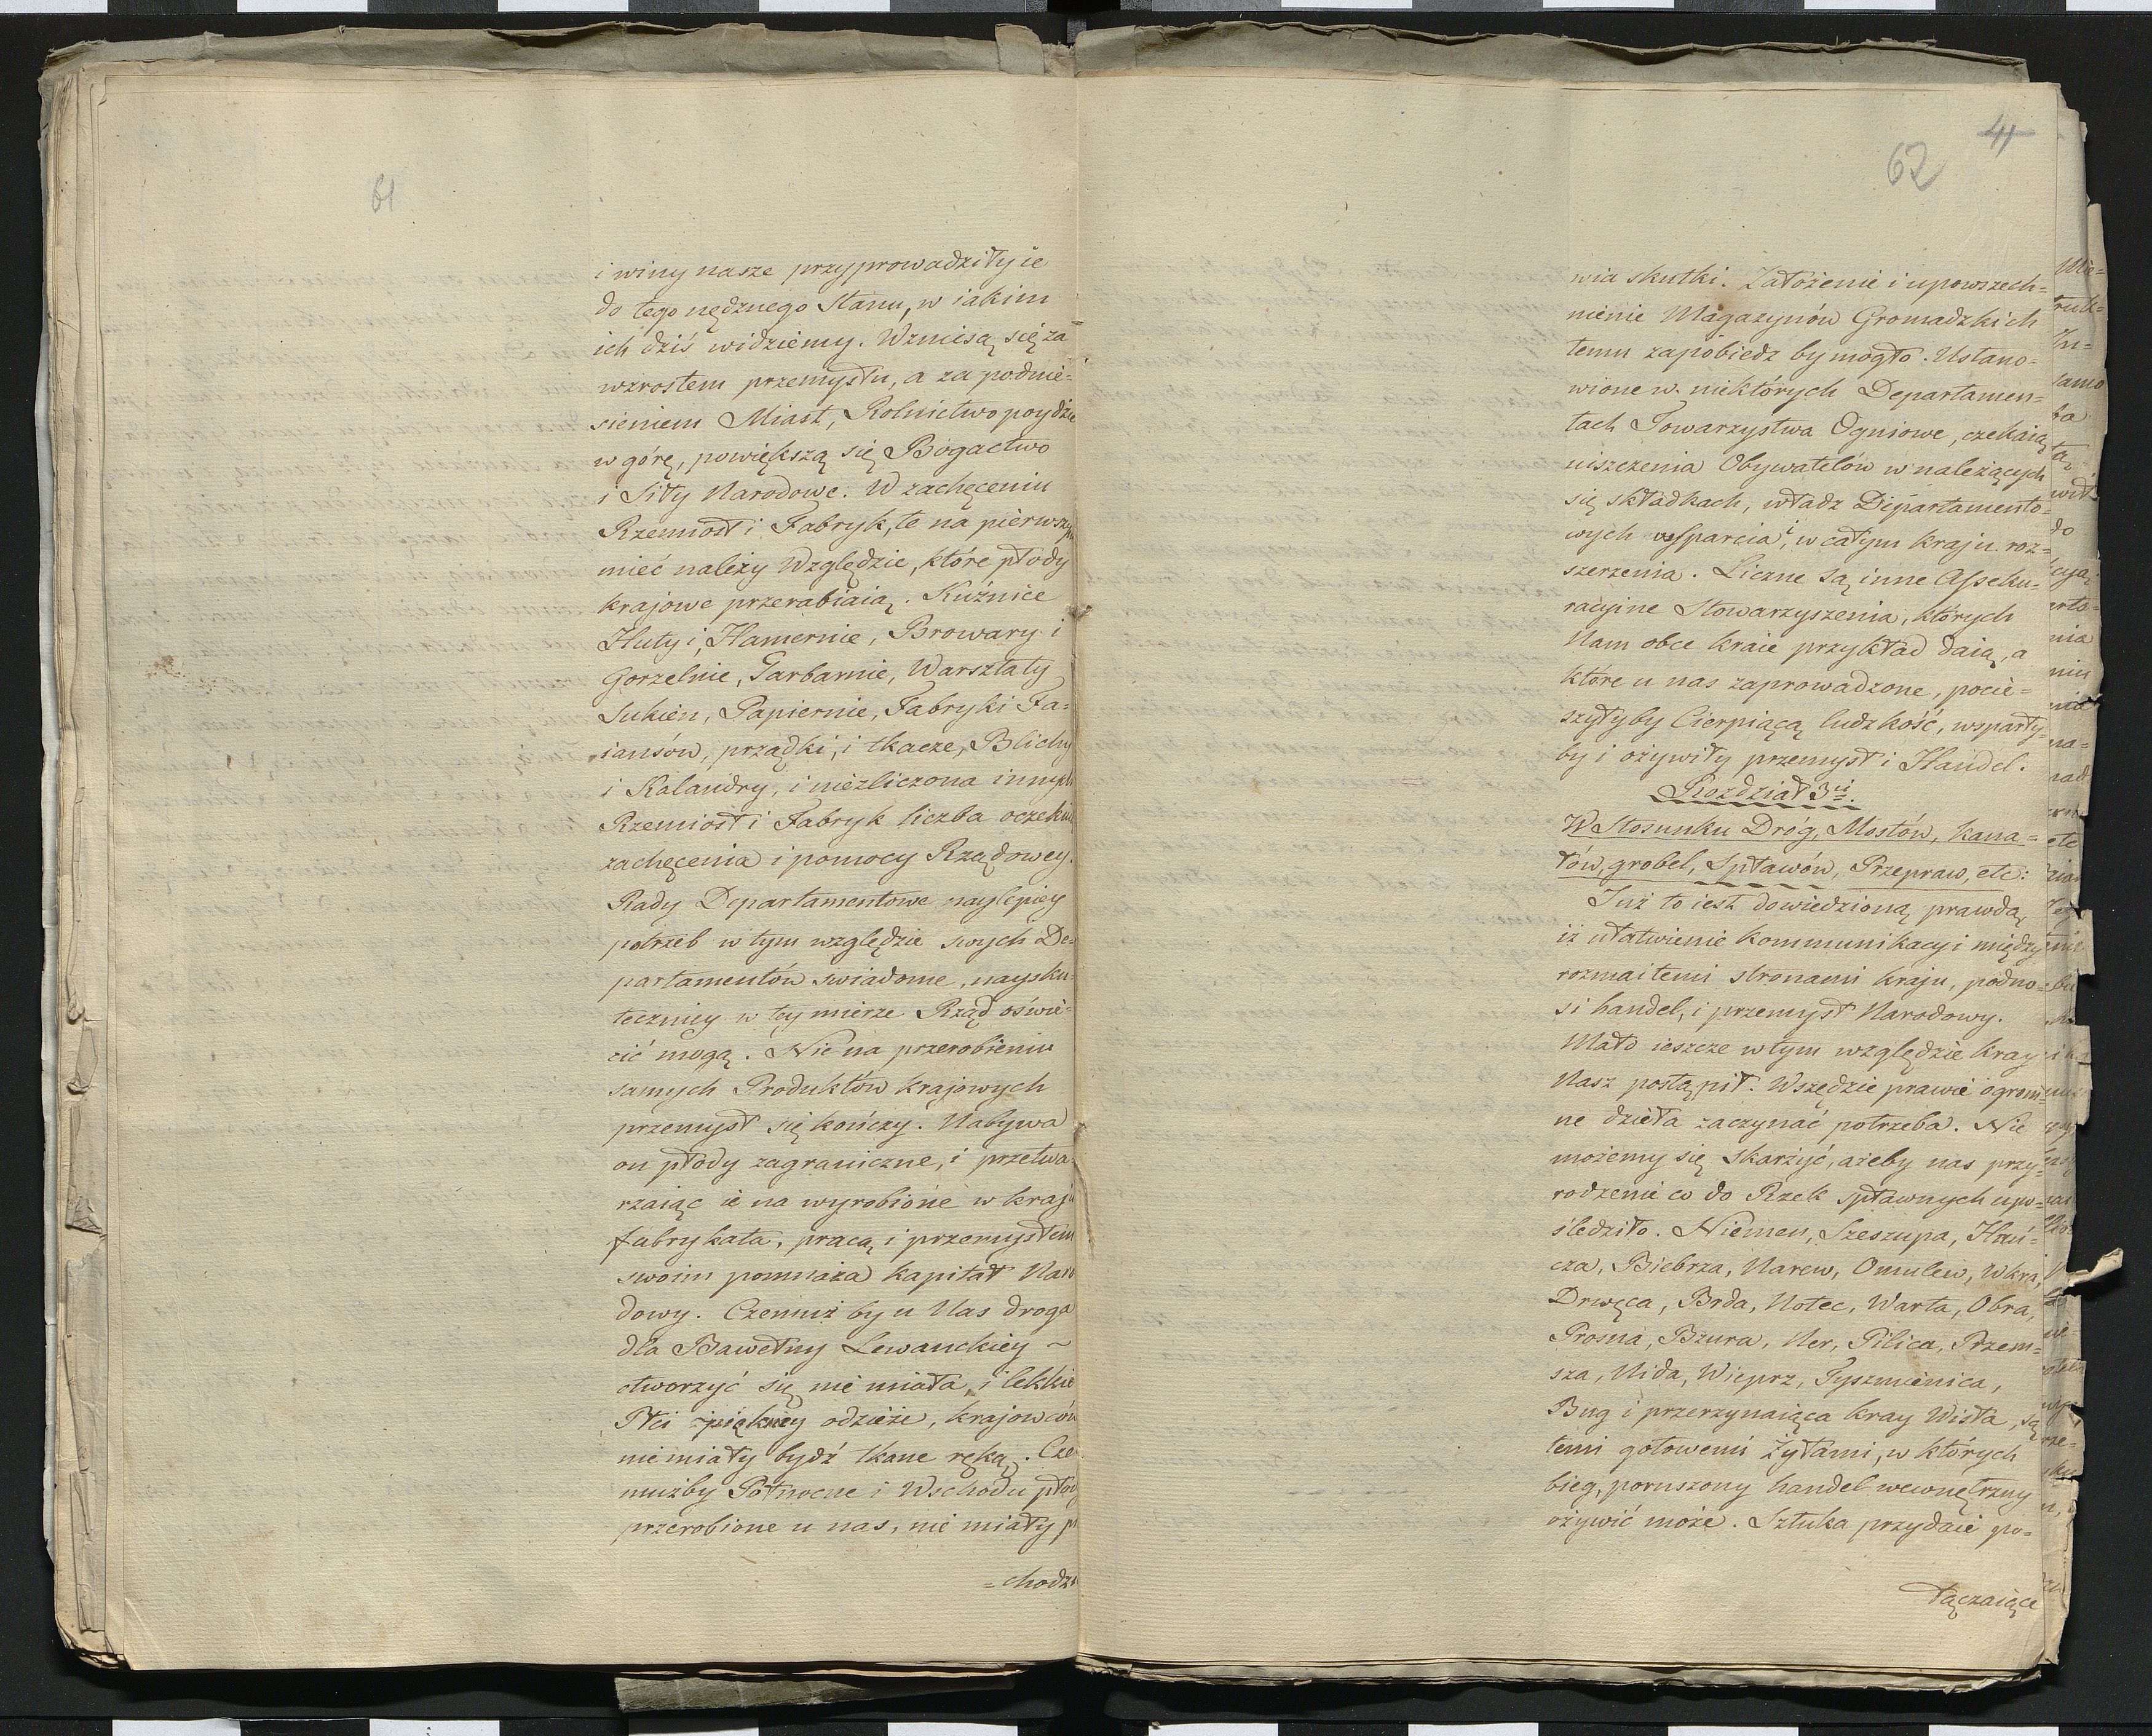 61
i winy nasze przyprowadziły ie
do tego nędznego Stanu, w iakim
ich dziś widziemy. Wznisą się za
wzrostem przemysłu, a za podnie=
sieniem Miast, Rolnictwo poydzie
w górę, powiększą się Bogactwo
i Siły Narodowe. W zachęceniu
Rzemiosł i Fabryk, te na pierwszym
mieć należy Względzie, które płody
krajowe przerabiaią. Kuźnice
Huty i, Hamernie, Browary i
Gorzelnie, Garbarnie, Warsztaty
Sukien, Papiernie, Fabryki Fa=
iansów, prządki, i tkacze, Blichy
i Kalandry, i niezliczona innych
Rzemiosł i Fabryk liczba oczekuie
zachęcenia i pomocy Rządowey.
Rady Departamentowe naylepiey
potrzeb w tym względzie swych De=
partamentów swiadome, naysku=
teczniey w tey mierze Rząd oświe=
cić mogą. Nie na przerobieniu
samych Produktów krajowych
przemysł się kończy. Nabywa
on płody zagraniczne, i przetwa
rzaiąc ie na wyrobione w kraju
fabrykata, pracą i przemysłem
swoim pomnaża kapitał Naro
dowy. Czemuż by u Nas droga
dla Bawełny Lewanckiey ~
otworzyć się nie miała, i lekkie
Płci piękney odzieże, krajowców
nie miały bydź tkane ręką. Cze
mużby Północne i Wschodu płody
przerobione u nas, nie miały
=chodzi
41
62
wia skutki. Założenie i upowszech=
nienie Magazynów Gromadzkich
temu zapobiedz by mogło. Ustano=
wione w niektórych Departamen=
tach Towarzystwa Ogniowe, czekaią
uiszczenia Obywatelów w należących
się składkach, władz Departamento=
wych wsparcia i, w całym kraju roz=
szerzenia. Liczne są inne Asseku=
racyine Stowarzyszenia, których
Nam obce kraie przykład daią, a
które u nas zaprowadzone, pocie=
szyłyby Cierpiącą ludzkość, wsparły=
by i ożywiły przemysł i Handel.
Rozdział 3ci.
W Stosunku Dróg, Mostów, kana=
łów, grobel, Spławów, Przepraw, etc:
Już to iest dowiedzioną prawdą,
iż ułatwienie kommunikacyi między
rozmaitemi stronami kraju, podno=
si handel, i przemysł Narodowy.
Mało ieszcze w tym względzie kray
Nasz postąpił. Wszędzie prawie ogrom=
ne dzieła zaczynać potrzeba. Nie
możemy się skarżyć, ażeby nas przy=
rodzenie co do Rzek spławnych upo=
śledziło. Niemen, Szeszupa, Hań=
cza, Biebrza, Narew, Omulew, Wkra,
Drwęca, Brda, Notec, Warta, Obra,
Prosna, Bzura, Ner, Pilica, Przem=
sza, Nida, Wieprz, Tyszmienica,
Bug i przerzynaiąca kray Wisła, są
temi gotowemi Żyłami, w których
bieg, poruszony handel wewnętrzny
ożywić może. Sztuka przydaie po=
łączaiące